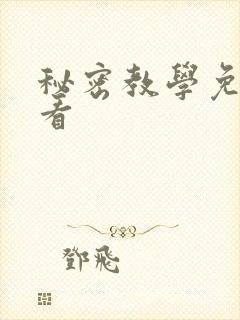 秘密教學免
看
鄧飛